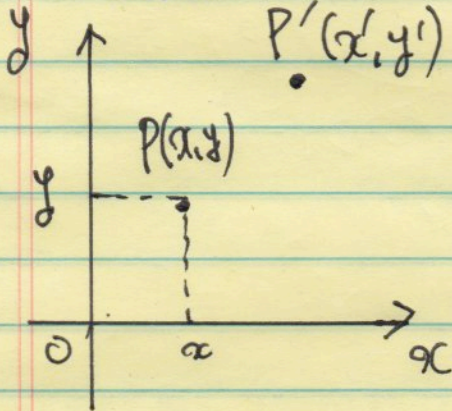 y
P'(x', y')
P(x,y)
y
O
x
x